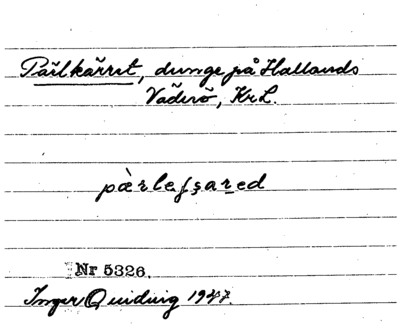 Pärlkärret, dunge på Hallands
Väderö, Kr L.
Nr 5326.
Inger Quiding 1947.